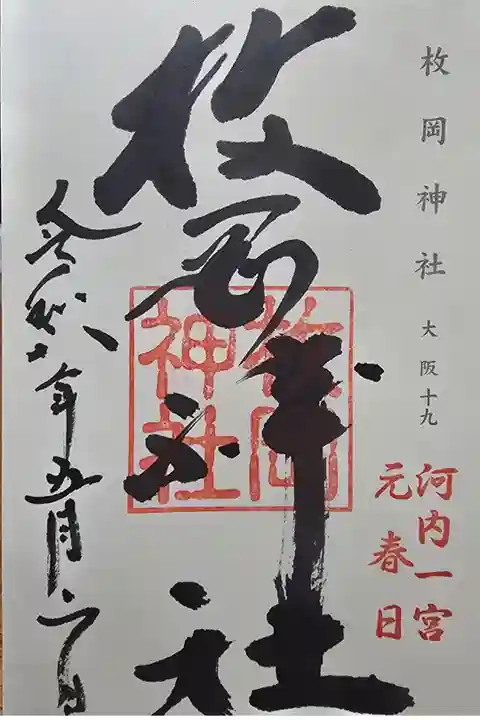 枚岡神社 大阪十九
河内一宮
元春日
枚岡神社
枚岡
神社
令和 年五月 日